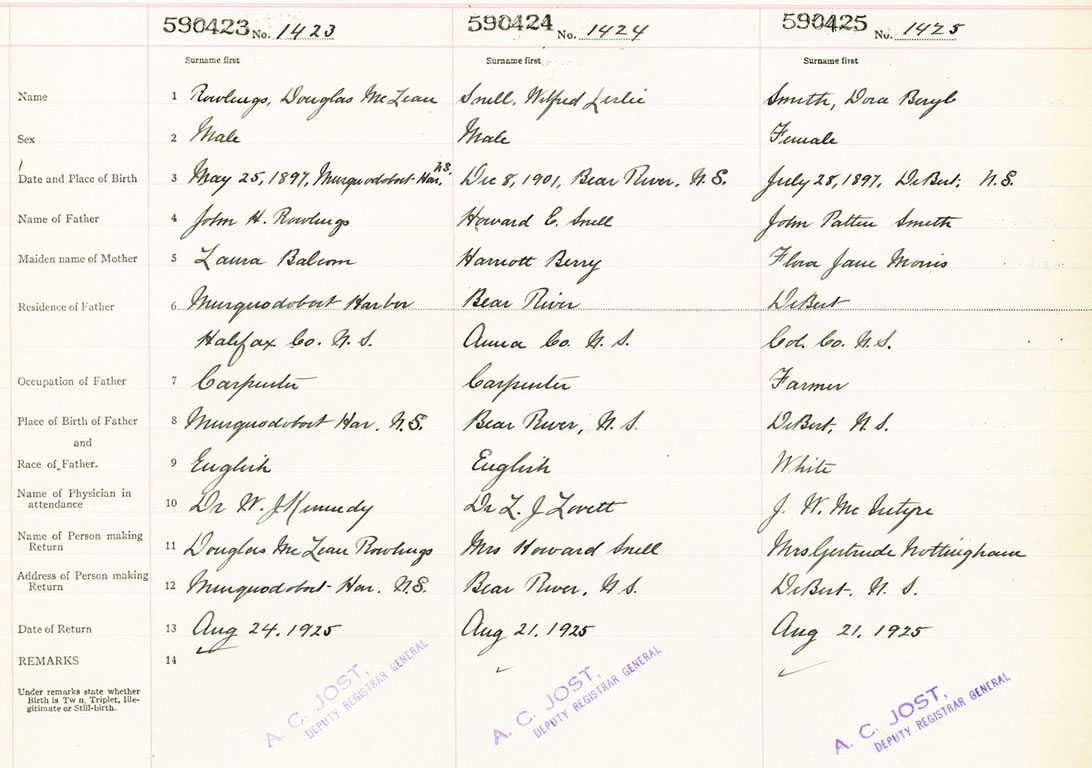 590423 No. 1423
590424 No. 1424
590425 No. 1425
Surname first Surname first Surname first
Name 1 Rowlings, Douglas McLean Snell, Wilfred Leslie Smith, Dora Beryl
Sex 2 Male Male Female
Date and Place of Birth 3 May 25, 1897, Musquodoboit Har. N.S. Dec 8, 1901, Bear River, N.S. July 28, 1897, DeBert, N.S.
Name of Father 4 John H. Rowlings Howard E. Snell John Patten Smith
Maiden name of Mother 5 Laura Balcom Harriott Berry Flora Jane Morris
Residence of Father 6 Musquodoboit Harbor Bear River DeBert
Halifax Co. N.S. Anna Co. N.S. Col. Co. N.S.
Occupation of Father 7 Carpenter Carpenter Farmer
Place of Birth of Father 8 Musquodoboit Har. N.S. Bear River, N.S. DeBert, N.S.
and
Race of Father. 9 English English White
Name of Physician in
attendance 10 Dr W. J Kennedy Dr L. J Lovett J. W. McIntyre
Name of Person making
Return 11 Douglas McLean Rowlings Mrs Howard Snell Mrs Gertrude Nottingham
Address of Person making
Return 12 Musquodoboit Har. N.S. Bear River, N.S. DeBert. N.S.
Date of Return 13 Aug 24, 1925 Aug 21, 1925 Aug 21, 1925
REMARKS 14
Under remarks state whether
Birth is Tw n, Triplet, Ille-
gitimate or Still-birth.
A. C. JOST,
DEPUTY REGISTRAR GENERAL
A. C. JOST,
DEPUTY REGISTRAR GENERAL
A. C. JOST,
DEPUTY REGISTRAR GENERAL